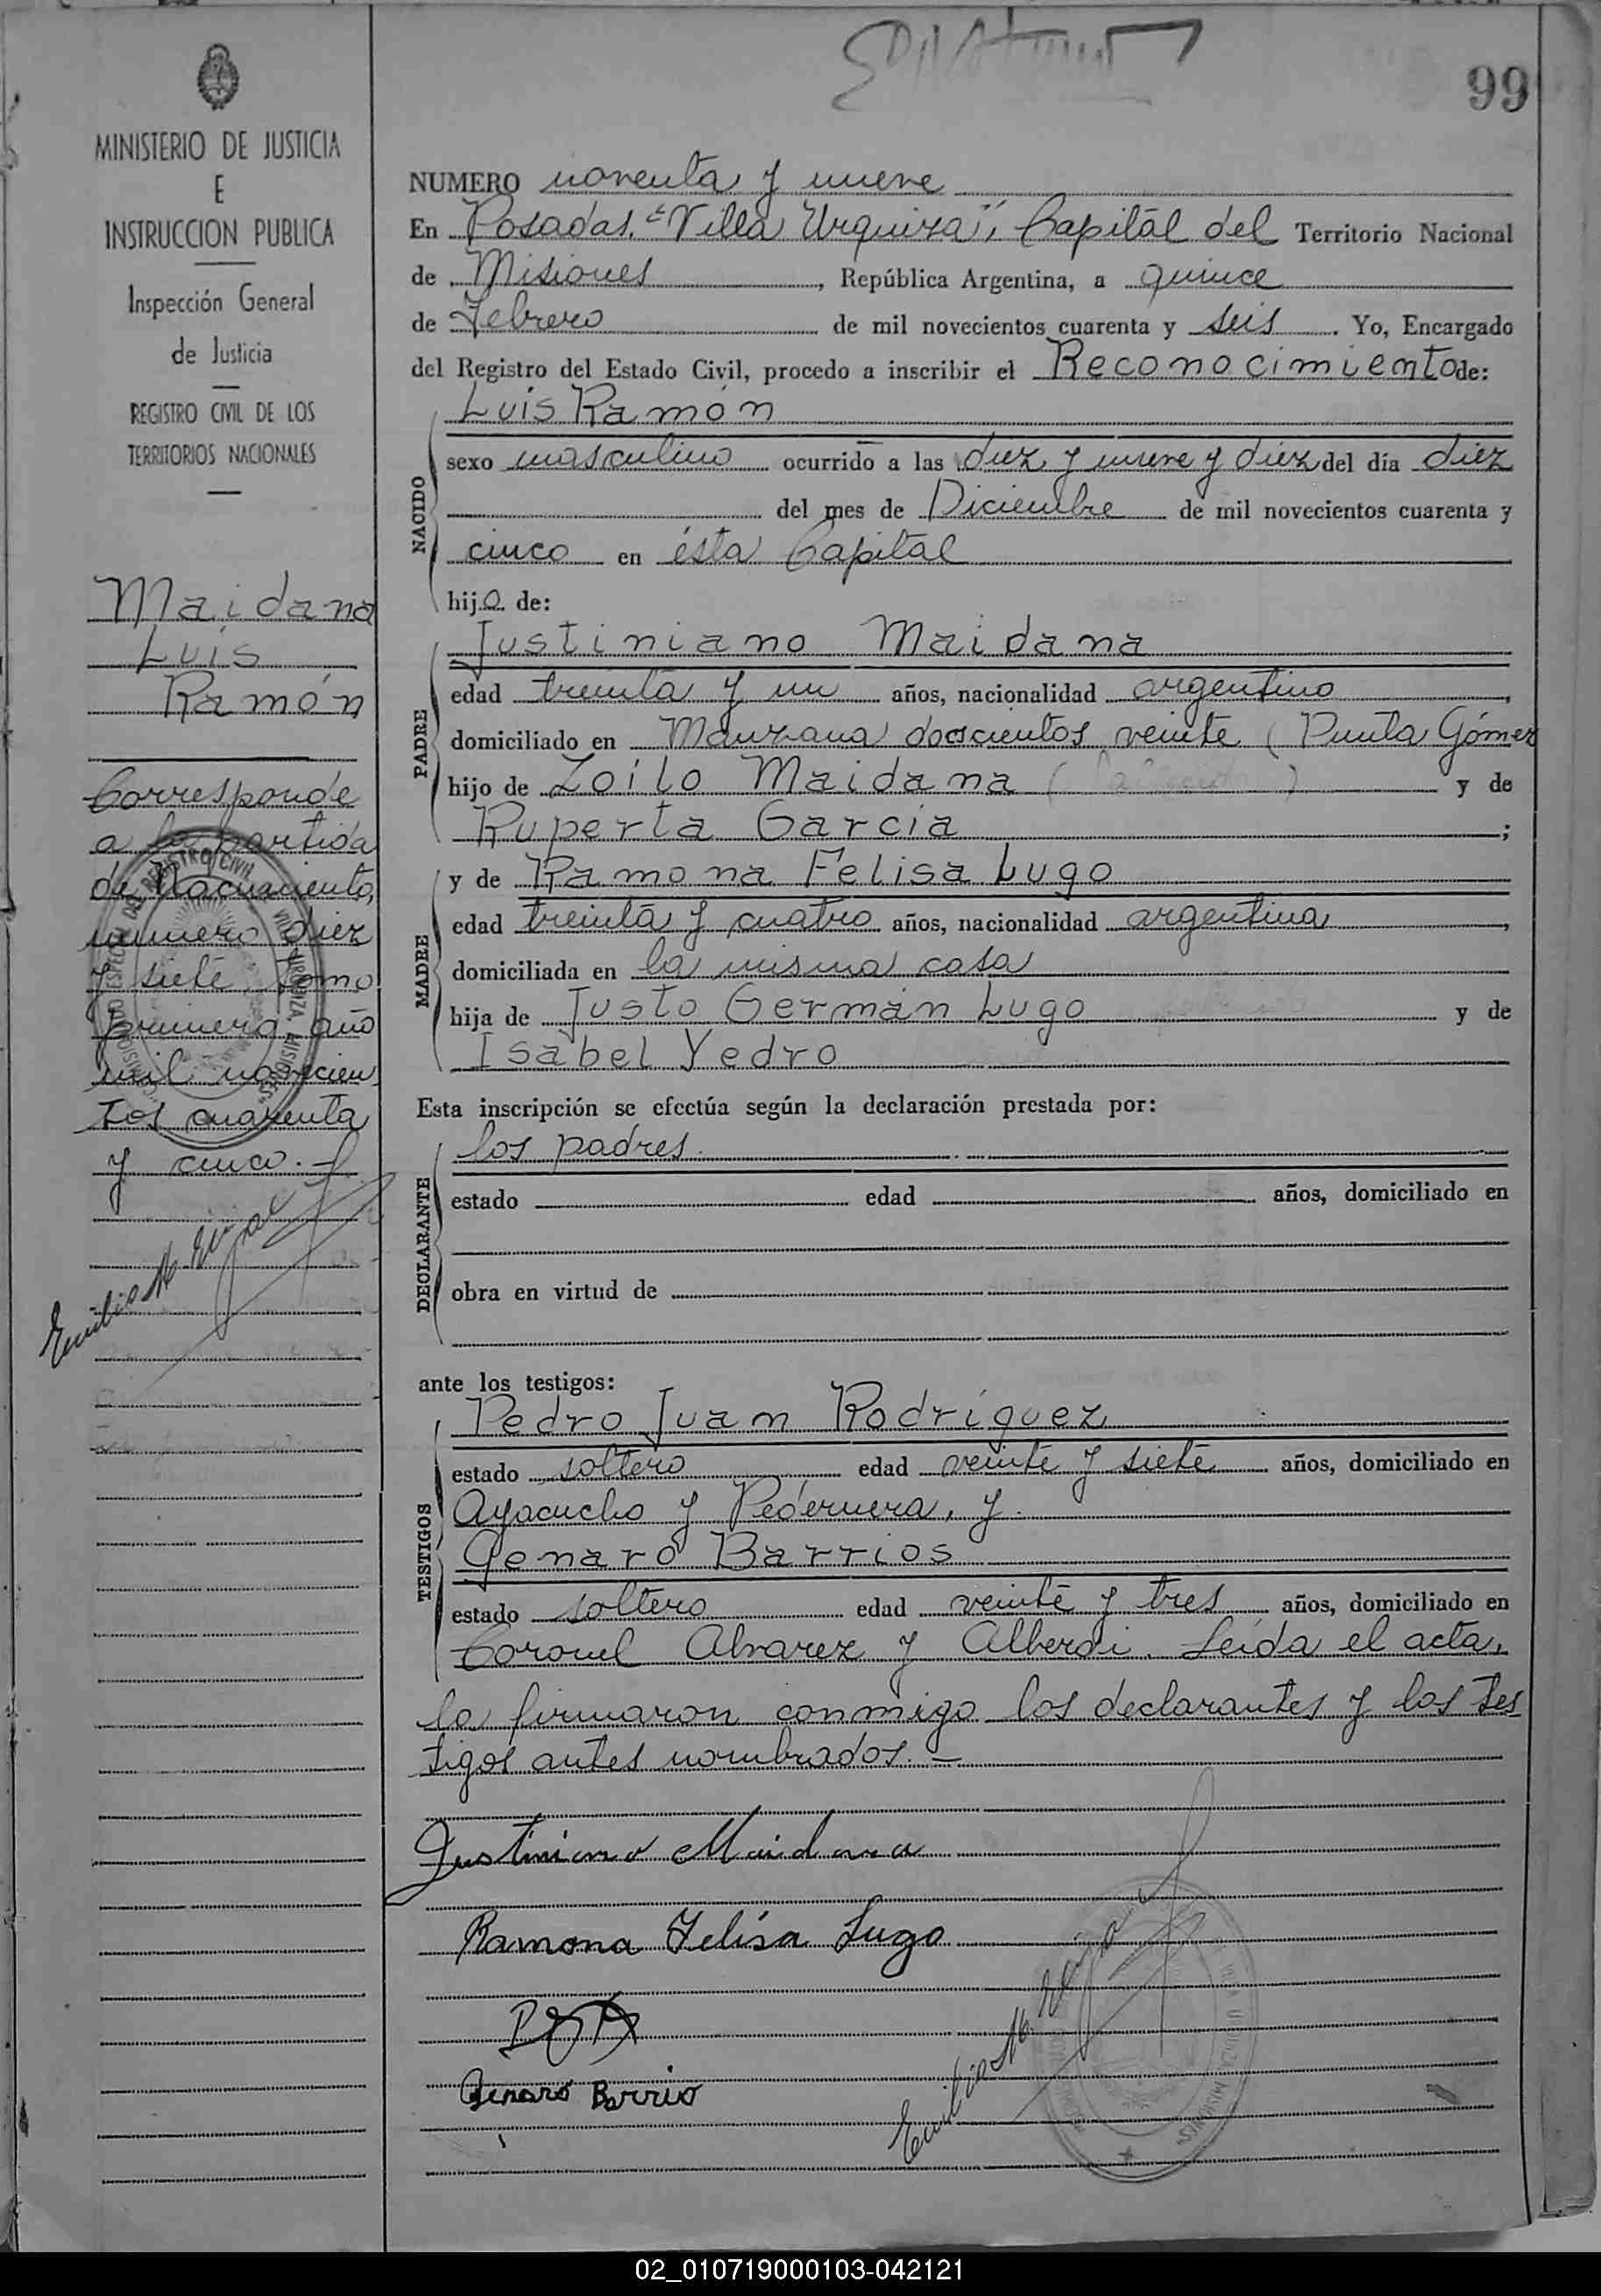 99
MINISTERIO DE JUSTICIA
E
INSTRUCCION PUBLICA
Inspección General
de Justicia
REGISTRO CIVIL DE LOS
TERRITORIOS NACIONALES
Maidana
Luis
Ramón
Corresponde
a la partida
de Nacimiento,
número diez
y siete, Tomo
primero, año
mil novecien
tos cuarenta
y cinco.
NUMERO noventa y nueve
En Posadas. "Villa Urquiza", Capital del Territorio Nacional
de Misiones, República Argentina, a quince
de Febrero de mil novecientos cuarenta y seis. Yo, Encargado
del Registro del Estado Civil, procedo a inscribir el Reconocimiento de:
NACIDO
Luis Ramón
sexo masculino ocurrido a las diez y nueve y diez del día diez
del mes de Diciembre de mil novecientos cuarenta y
cinco en ésta Capital
hijo de:
PADRE
Justiniano Maidana
edad treinta y un años, nacionalidad argentino,
domiciliado en Manzana doscientos veinte (Punta Gómez
hijo de Zoilo Maidana ( ) y de
Ruperta Garcia;
MADRE
y de Ramona Felisa Lugo
edad treinta y cuatro años, nacionalidad argentina,
domiciliada en la misma casa
hija de Justo Germán Lugo y de
Isabel Yedro
Esta inscripción se efectúa según la declaración prestada por:
DECLARANTE
los padres.
estado edad años, domiciliado en
obra en virtud de
ante los testigos:
TESTIGOS
Pedro Juan Rodríguez
estado soltero edad veinte y siete años, domiciliado en
Ayacucho y Pedernera, y.
Genaro Barrios
estado soltero edad veinte y tres años, domiciliado en
Coronel Alvarez y Alberdi. Leída el acta,
la firmaron conmigo los declarantes y los tes
tigos antes nombrados.—
Justiniano Maidana
Ramona Felisa Lugo
Genaro Barrio
02_010719000103-042121